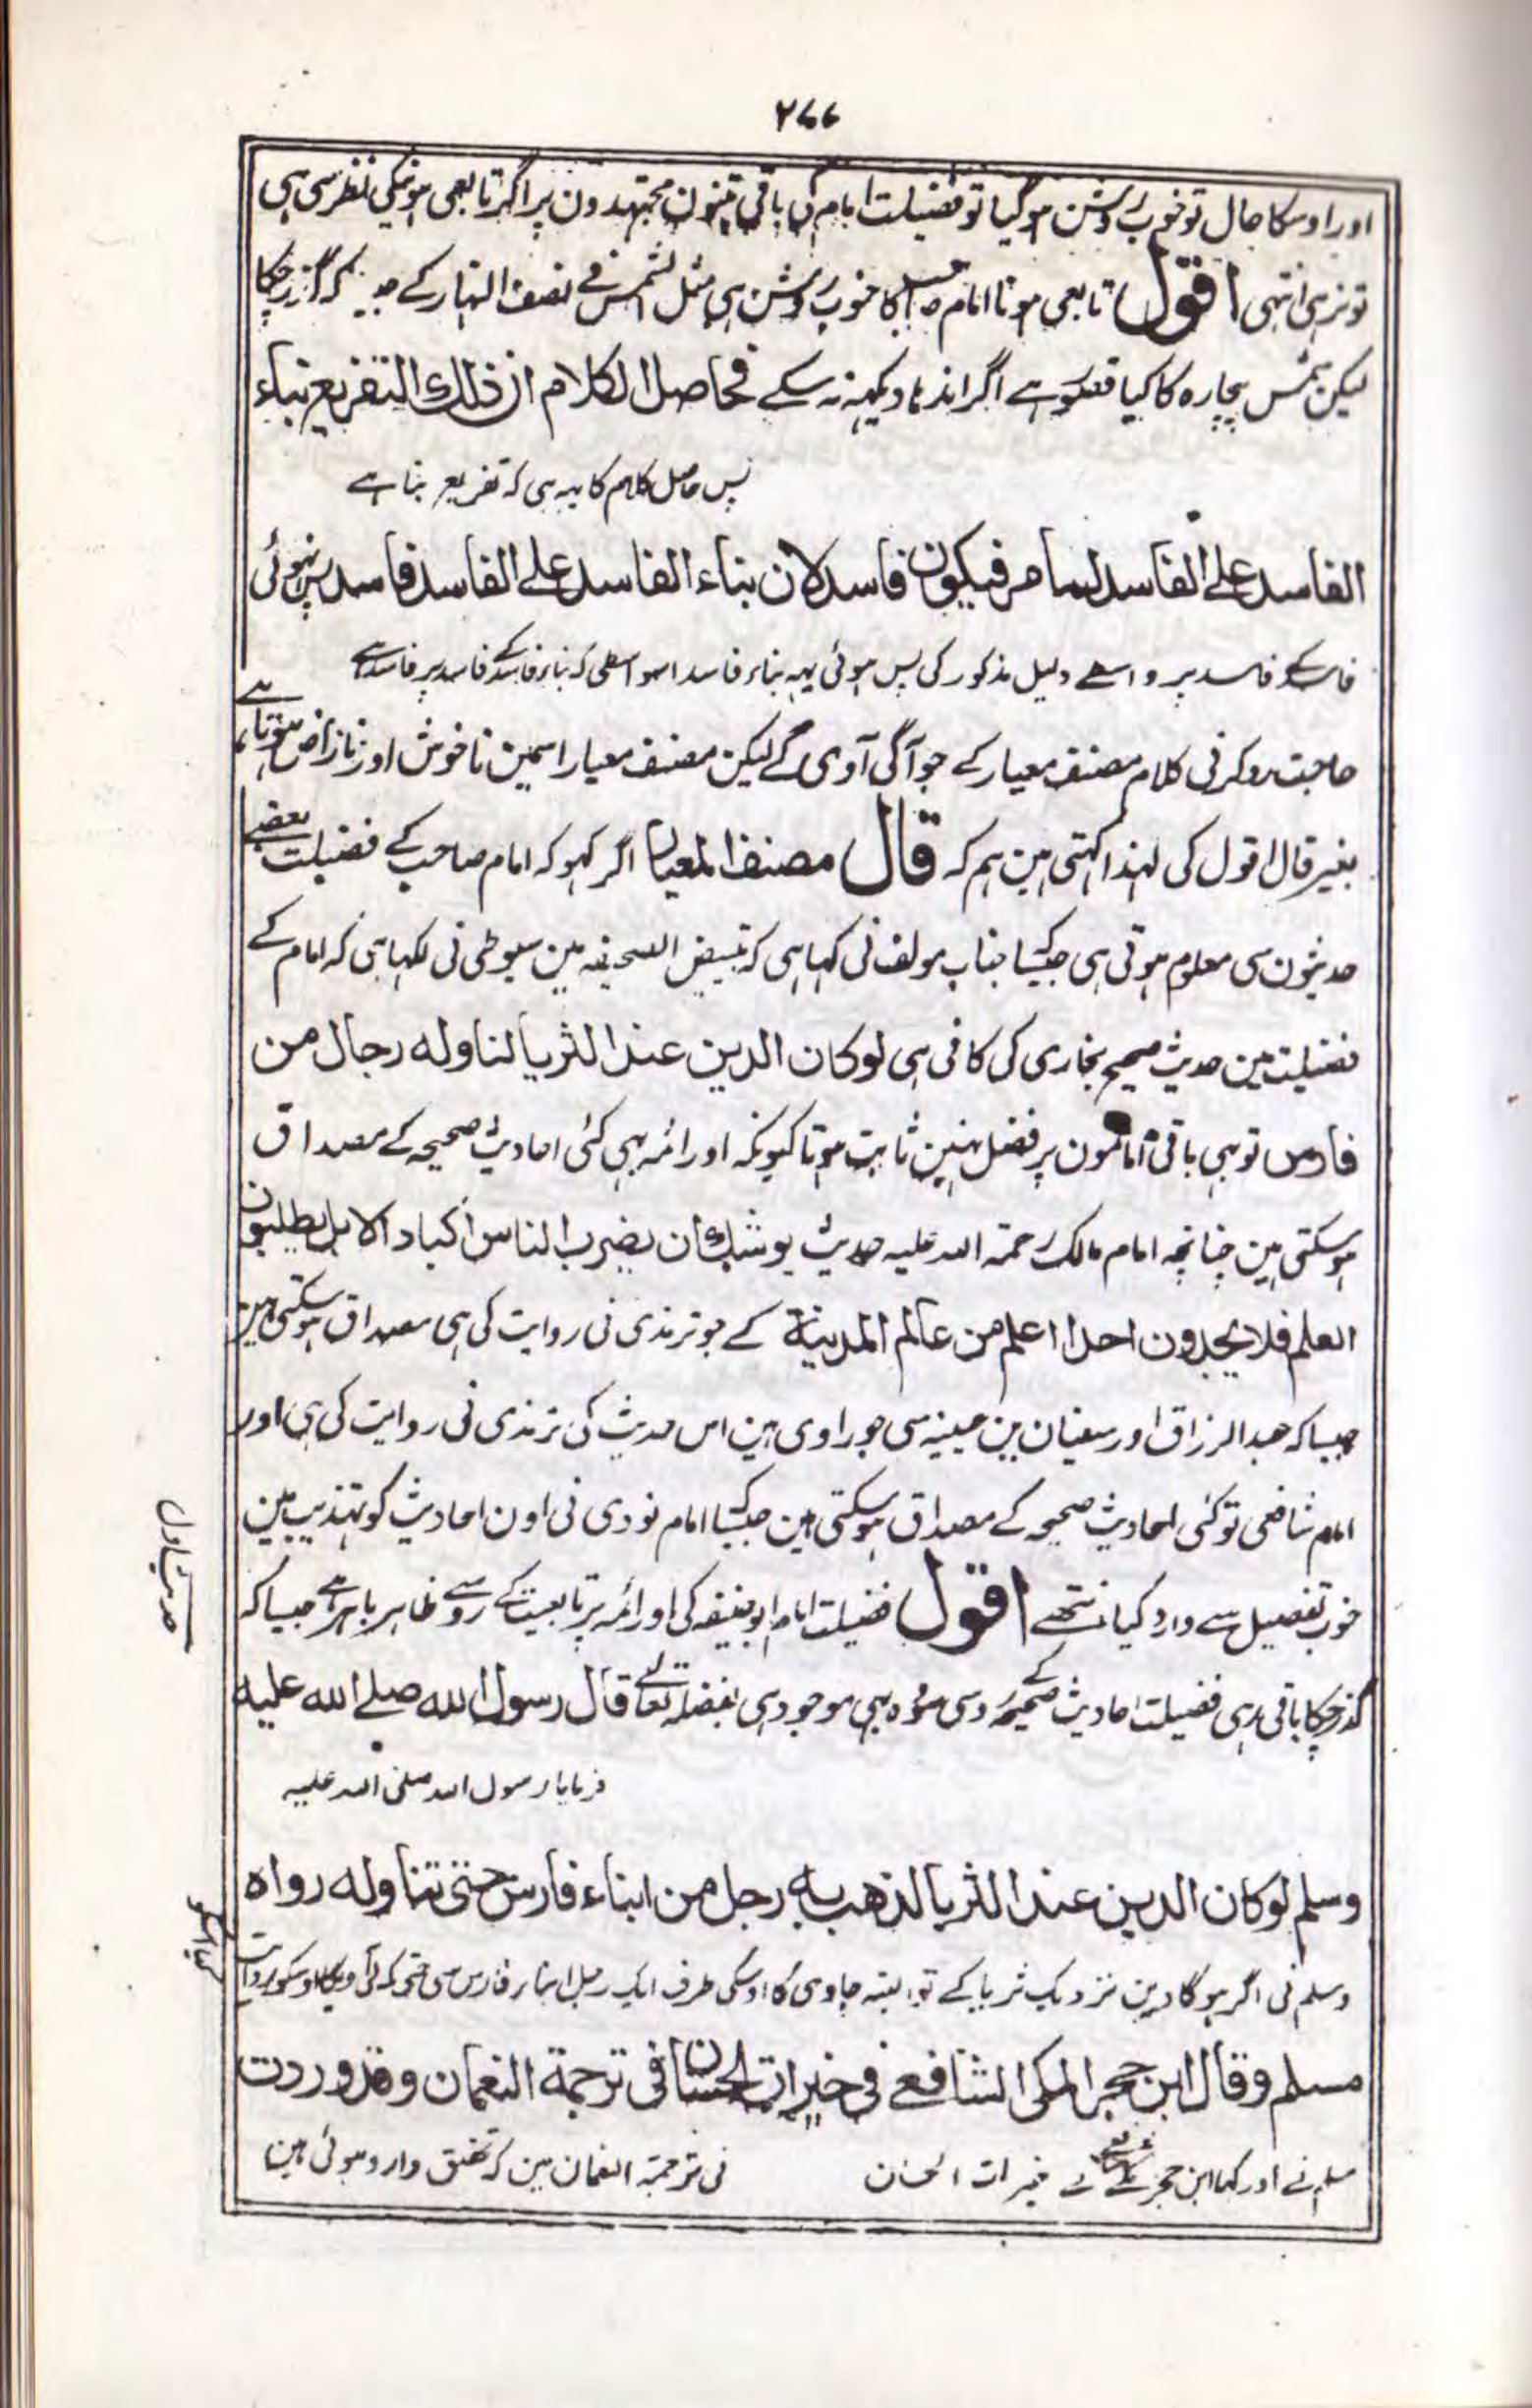 ۲۷۷
اور اوسکا حال تو خوب روشن ہو گیا تو فضیلت امام کی باقی تینون مجتہدون پر اگر تابعی ہونیکی نظر سی ہی
تو نرہی انتہی اقول تابعی ہونا امام صاحب کا خوب روشن ہی مثل الشمس فے نصف النہار کے کہ گزر چکا
لیکن شمس بیچارہ کا کیا قصور ہے اگر اندہا دیکھہ نہ سکے فحاصل الکلام ان ذلك التفریع بناء
پس حاصل کلام کا یہہ ہی کہ تفریع بنا ہے
الفاسد علے الفاسد لما مر فیکون فاسد لان بناء الفاسد علے الفاسد فاسد پس نہوئی
فاسد کے فاسد پر واسطے دلیل مذکور کی پس ہوئی یہہ بناء فاسد اسواسطی کہ بناء فاسد کے فاسد پر فاسد ہے
حاجت رد کرنی کلام مصنف معیار کے جو آگی آوی گے لیکن مصنف معیار اسمین ناخوش اور ناراض ہوتا ہے
بغیر قال اقول کی لہذا کہتی ہین ہم کہ قال مصنف المعیار اگر کہو کہ امام صاحب کے فضیلت بعضے
حدیثون سی معلوم ہوتی ہی جیسا جناب مولف نی کہا ہی کہ تبییض الصحیفہ مین سیوطی نی لکہا ہی کہ امام کے
فضیلت مین حدیث صحیح بخاری کی کافی ہی لو کان الدین عند الثریا لناوله رجال من
فارس تو بہی باقی امامون پر فضل نہین ثابت ہوتا کیونکہ اور ائمہ بہی کئی احادیث صحیحہ کے مصداق
ہو سکتی ہین چنانچہ امام مالک رحمتہ اللہ علیہ حدیث یوشك ان یضرب الناس اکباد الابل یطلبون
العلم فلا یجدون احدا اعلم من عالم المدینة کے جو ترمذی نی روایت کی ہی مصداق ہو سکتی ہین
جیسا کہ عبد الرزاق اور سفیان بن عیینہ سی جو راوی ہین اس حدیث کی ترمذی نی روایت کی ہی اور
امام شافعی تو کئی احادیث صحیحہ کے مصداق ہو سکتی ہین جیسا امام نووی نی اون احادیث کو تہذیب مین
خوب تفصیل سے وارد کیا انتہے اقول فضیلت امام ابو حنیفہ کی اور ائمہ پر تابعیت کے روسے ظاہر باہر ہے جیسا کہ
گذر چکا باقی رہی فضیلت احادیث صحیحہ کے روسی سو وہ بہی موجود ہی بفضلہ تعالے قال رسول الله صلے الله علیه
فرمایا رسول اللہ صلی اللہ علیہ
وسلم لو کان الدین عند الثریا لذهب به رجل من ابناء فارس حتی تناوله رواه
وسلم نی اگر ہوگا دین نزدیک ثریا کے تو البتہ جاوی گا اوسکی طرف ایک رجل ابناء فارس سی حتی کہ لی آویگا اوسکو روایت
مسلم وقال ابن حجر المکی الشافعے فی خیرات الحسان فی ترجمة النعمان وقد وردت
مسلم نے اور کہا ابن حجر مکے شافعے نے خیرات الحسان فی ترجمة النعمان مین کہ تحقیق وارد ہوئی ہین
حدیث اول
کیا اسکو